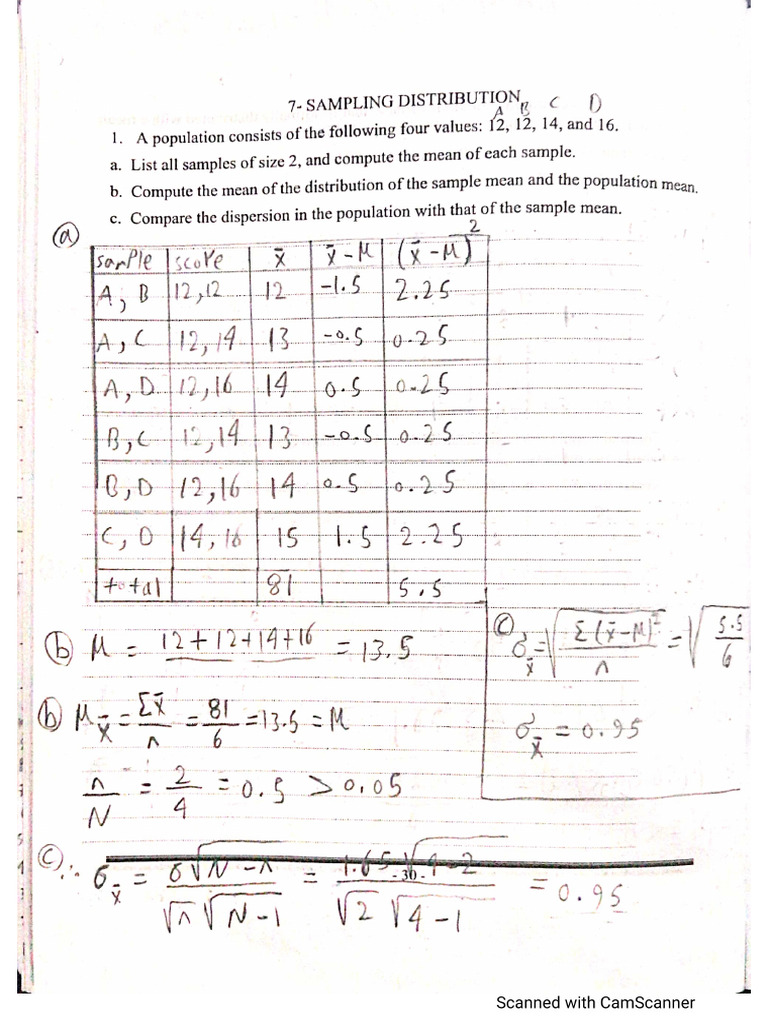 7- SAMPLING DISTRIBUTION
A B C D
1. A population consists of the following four values: 12, 12, 14, and 16.
a. List all samples of size 2, and compute the mean of each sample.
b. Compute the mean of the distribution of the sample mean and the population mean.
c. Compare the dispersion in the population with that of the sample mean.
(a)
sample score x̄ x̄-M (x̄-M)²
A, B 12,12 12 -1.5 2.25
A,C 12,14 13 -0.5 0.25
A,D 12,16 14 0.5 0.25
B,C 12,14 13 -0.5 0.25
B,D 12,16 14 0.5 0.25
C,D 14,16 15 1.5 2.25
total 81 5.5
(b) M = 12+12+14+16 = 13.5
(b) Mx̄ = Σx̄/n = 81/6 = 13.5 = M
n/N = 2/4 = 0.5 > 0.05
(c) σx̄ = √(Σ(x̄-M)²/n) = √(5.5/6)
σx̄ = 0.95
(c) ∴ σx̄ = σ√N-n / √n √N-1 = 1.65√4-2 / √2 √4-1 = 0.95
- 30 -
Scanned with CamScanner